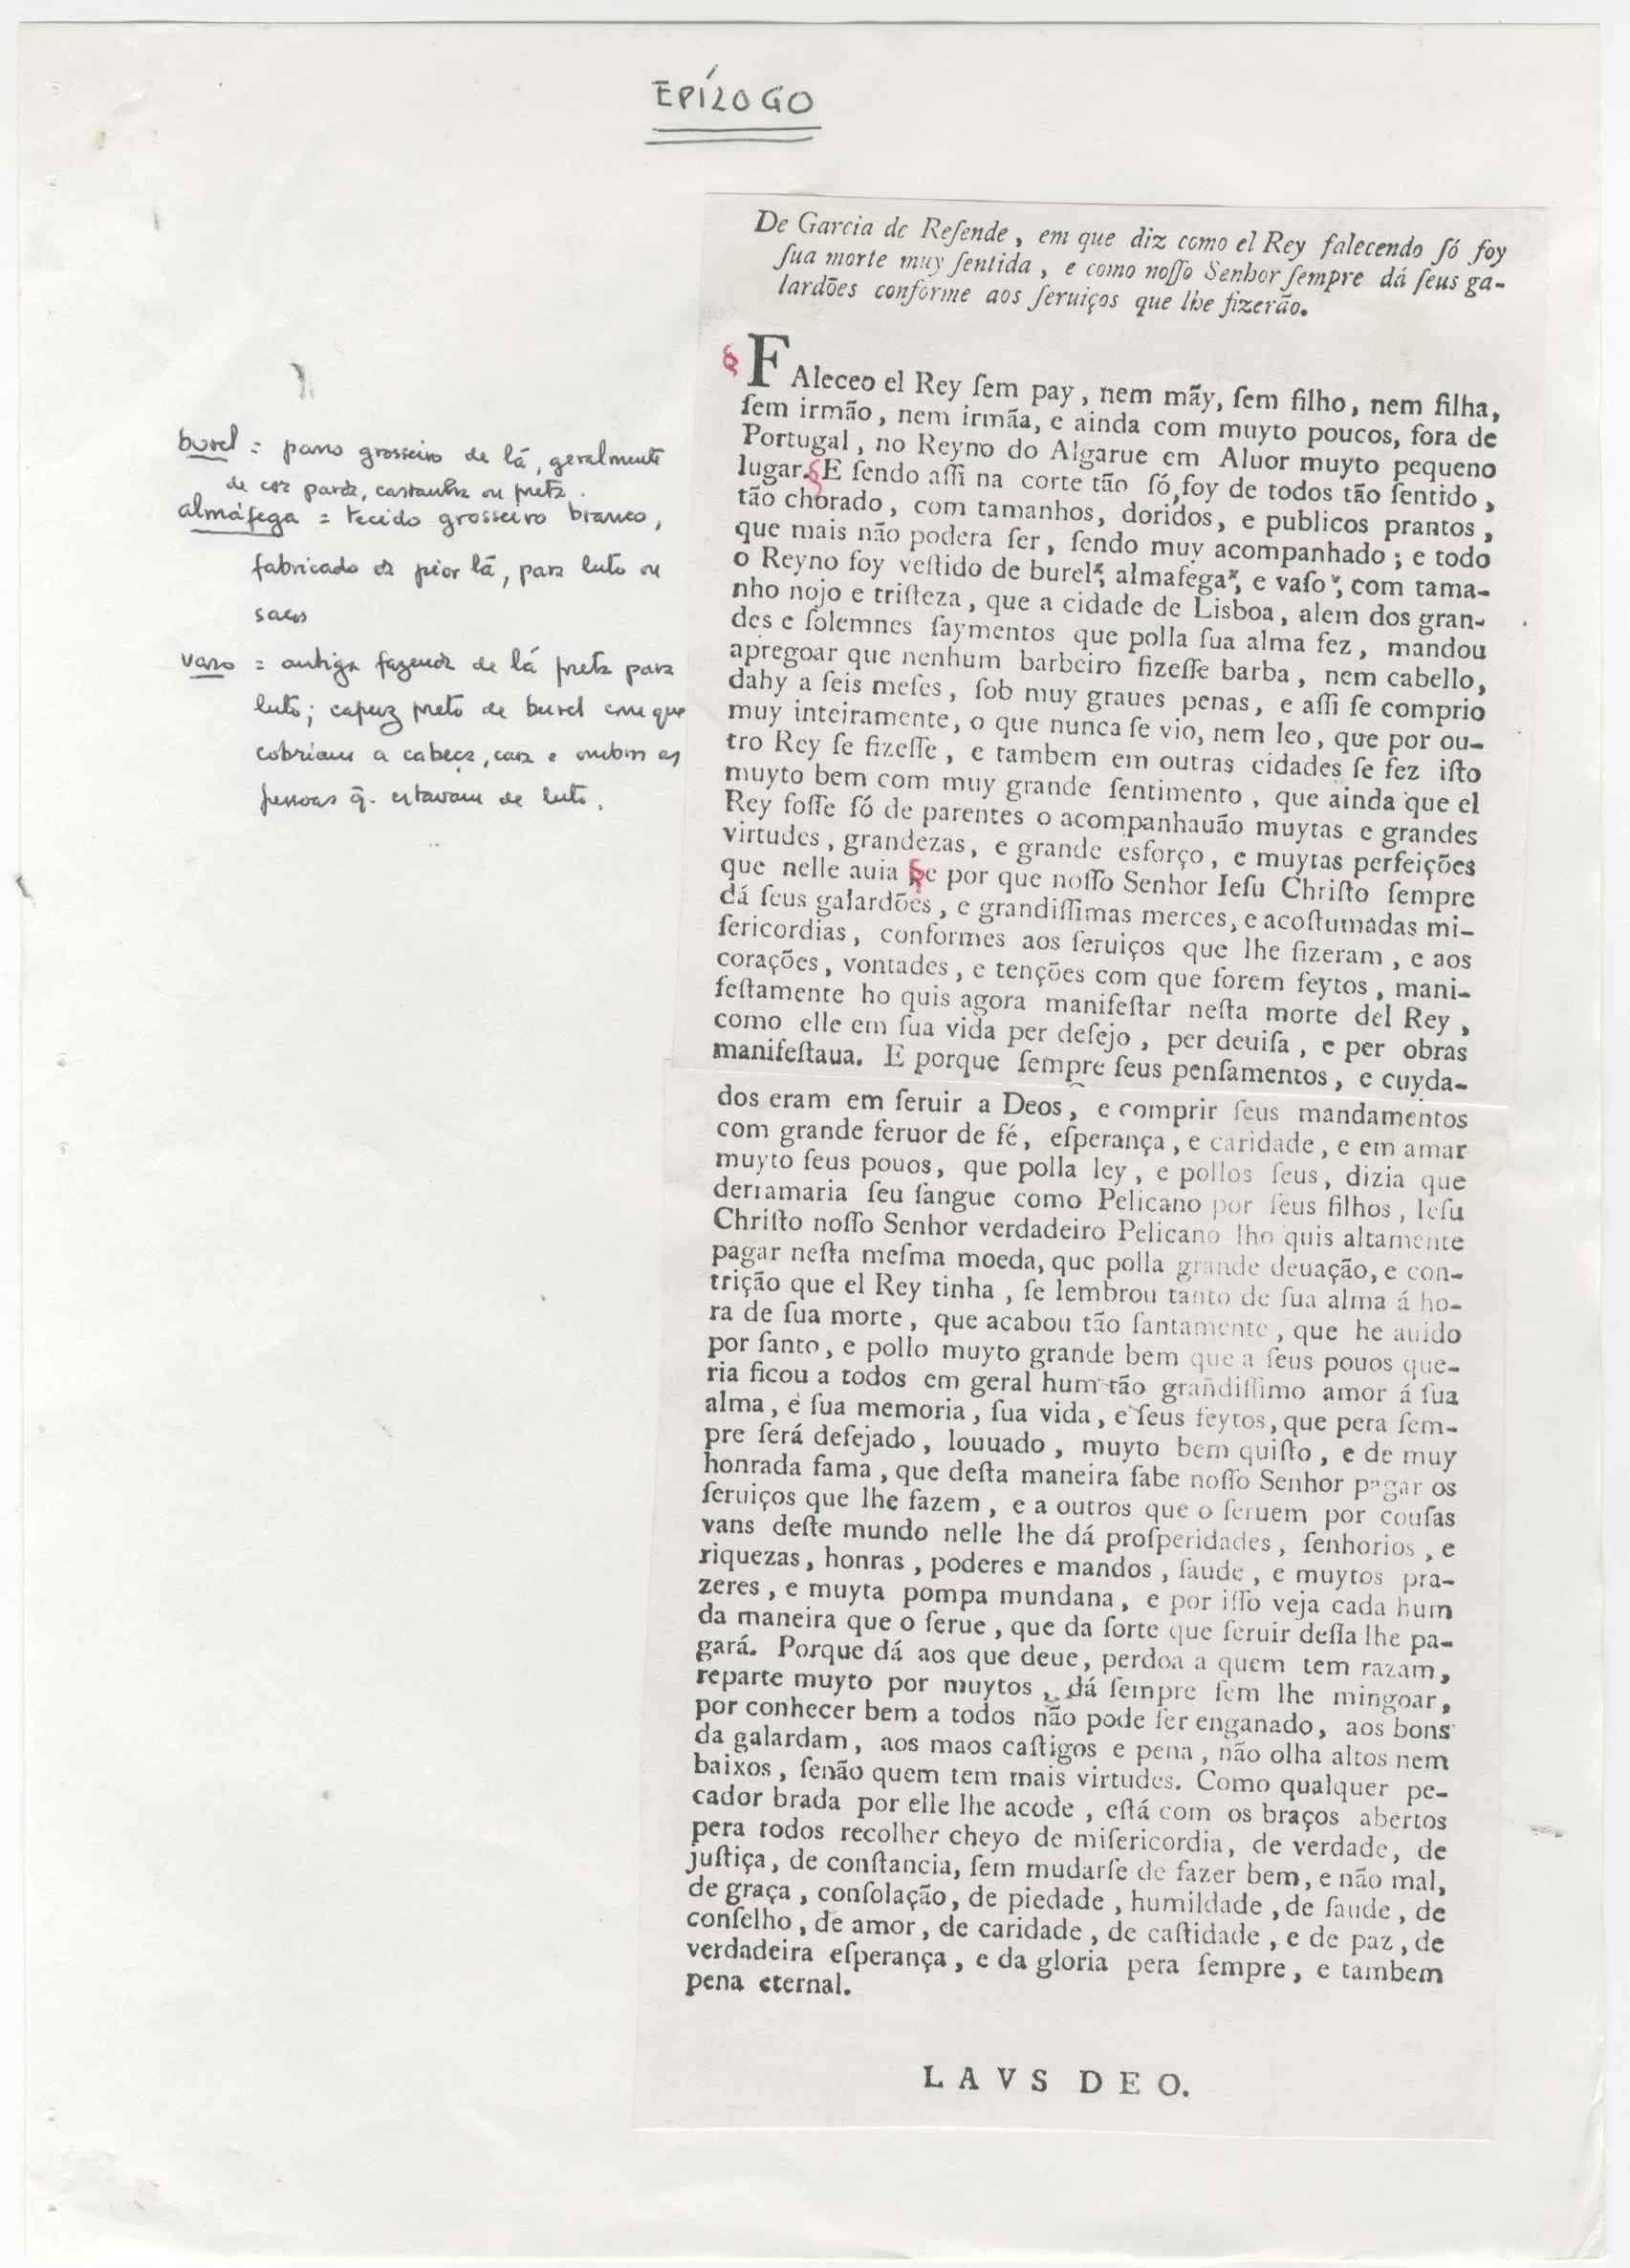 EPÍLOGO
De Garcia de Reſende, em que diz como el Rey falecendo ſó foy
ſua morte muy ſentida, e como noſſo Senhor ſempre dá ſeus ga-
lardões conforme aos ſeruiços que lhe fizerão.
burel = pano grosseiro de lã, geralmente
de cor parda, castanha ou preta.
almáfega = tecido grosseiro branco,
fabricado da pior lã, para luto ou
sacos
vaso = antiga fazenda de lã preta para
luto; capuz preto de burel com que
cobriam a cabeça, cara e ombros as
pessoas q. estavam de luto.
§ FAleceo el Rey ſem pay, nem mãy, ſem filho, nem filha,
ſem irmão, nem irmãa, e ainda com muyto poucos, fora de
Portugal, no Reyno do Algarue em Aluor muyto pequeno
lugar. § E ſendo aſſi na corte tão ſó, foy de todos tão ſentido,
tão chorado, com tamanhos, doridos, e publicos prantos,
que mais não podera ſer, ſendo muy acompanhado; e todo
o Reyno foy veſtido de burel, almafega, e vaſo, com tama-
nho nojo e triſteza, que a cidade de Lisboa, alem dos gran-
des e ſolemnes ſaymentos que polla ſua alma fez, mandou
apregoar que nenhum barbeiro fizeſſe barba, nem cabello,
dahy a ſeis meſes, ſob muy graues penas, e aſſi ſe comprio
muy inteiramente, o que nunca ſe vio, nem leo, que por ou-
tro Rey ſe fizeſſe, e tambem em outras cidades ſe fez iſto
muyto bem com muy grande ſentimento, que ainda que el
Rey foſſe ſó de parentes o acompanhauão muytas e grandes
virtudes, grandezas, e grande esforço, e muytas perfeições
que nelle auia § e por que noſſo Senhor Ieſu Chriſto ſempre
dá ſeus galardões, e grandiſſimas merces, e acoſtumadas mi-
ſericordias, conformes aos ſeruiços que lhe fizeram, e aos
corações, vontades, e tenções com que forem feytos, mani-
feſtamente ho quis agora manifeſtar neſta morte del Rey,
como elle em ſua vida per deſejo, per deuiſa, e per obras
manifeſtaua. E porque ſempre ſeus penſamentos, e cuyda-
dos eram em ſeruir a Deos, e comprir ſeus mandamentos
com grande feruor de fé, eſperança, e caridade, e em amar
muyto ſeus pouos, que polla ley, e pollos ſeus, dizia que
derramaria ſeu ſangue como Pelicano por ſeus filhos, Ieſu
Chriſto noſſo Senhor verdadeiro Pelicano lho quis altamente
pagar neſta meſma moeda, que polla grande deuação, e con-
trição que el Rey tinha, ſe lembrou tanto de ſua alma á ho-
ra de ſua morte, que acabou tão ſantamente, que he auido
por ſanto, e pollo muyto grande bem que a ſeus pouos que-
ria ficou a todos em geral hum tão grandiſſimo amor á ſua
alma, e ſua memoria, ſua vida, e ſeus feytos, que pera ſem-
pre ſerá deſejado, louuado, muyto bem quiſto, e de muy
honrada fama, que deſta maneira ſabe noſſo Senhor pagar os
ſeruiços que lhe fazem, e a outros que o ſeruem por couſas
vans deſte mundo nelle lhe dá proſperidades, ſenhorios, e
riquezas, honras, poderes e mandos, ſaude, e muytos pra-
zeres, e muyta pompa mundana, e por iſſo veja cada hum
da maneira que o ſerue, que da ſorte que ſeruir deſſa lhe pa-
gará. Porque dá aos que deue, perdoa a quem tem razam,
reparte muyto por muytos, dá ſempre ſem lhe mingoar,
por conhecer bem a todos não pode ſer enganado, aos bons
da galardam, aos maos caſtigos e pena, não olha altos nem
baixos, ſenão quem tem mais virtudes. Como qualquer pe-
cador brada por elle lhe acode, eſtá com os braços abertos
pera todos recolher cheyo de miſericordia, de verdade, de
juſtiça, de conſtancia, ſem mudarſe de fazer bem, e não mal,
de graça, conſolação, de piedade, humildade, de ſaude, de
conſelho, de amor, de caridade, de caſtidade, e de paz, de
verdadeira eſperança, e da gloria pera ſempre, e tambem
pena eternal.
LAVS DEO.